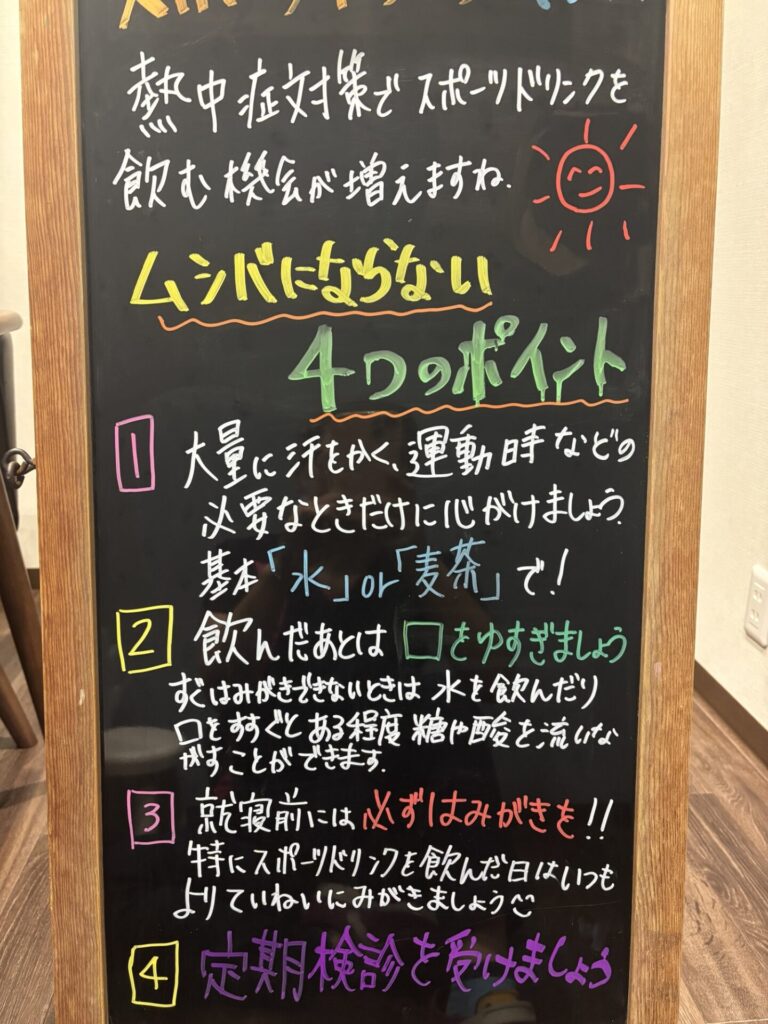 熱中症対策でスポーツドリンクを
飲む機会が増えますね.
ムシバにならない
4つのポイント
1 大量に汗をかく、運動時などの
必要なときだけに心がけましょう.
基本「水」or「麦茶」で!
2 飲んだあとは 口をゆすぎましょう
すぐはみがきできないときは 水を飲んだり
口をすすぐと ある程度 糖や酸を流いな
がすことができます.
3 就寝前には必ずはみがきを!!
特にスポーツドリンクを飲んだ日はいつも
よりていねいにみがきましょう
4 定期検診を受けましょう